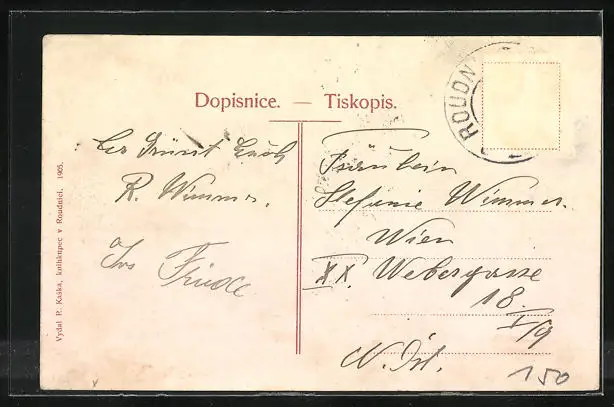 Dopisnice. — Tiskopis.
ROUDN
Vydal P. Kaška, knihkupec v Roudnici. 1905.
Es Grüsst Euch
R. Wimmer.
Fräulein
Stefanie Wimmer.
Wien
XX. Webergasse
18.
I/9
N. Öst.
150